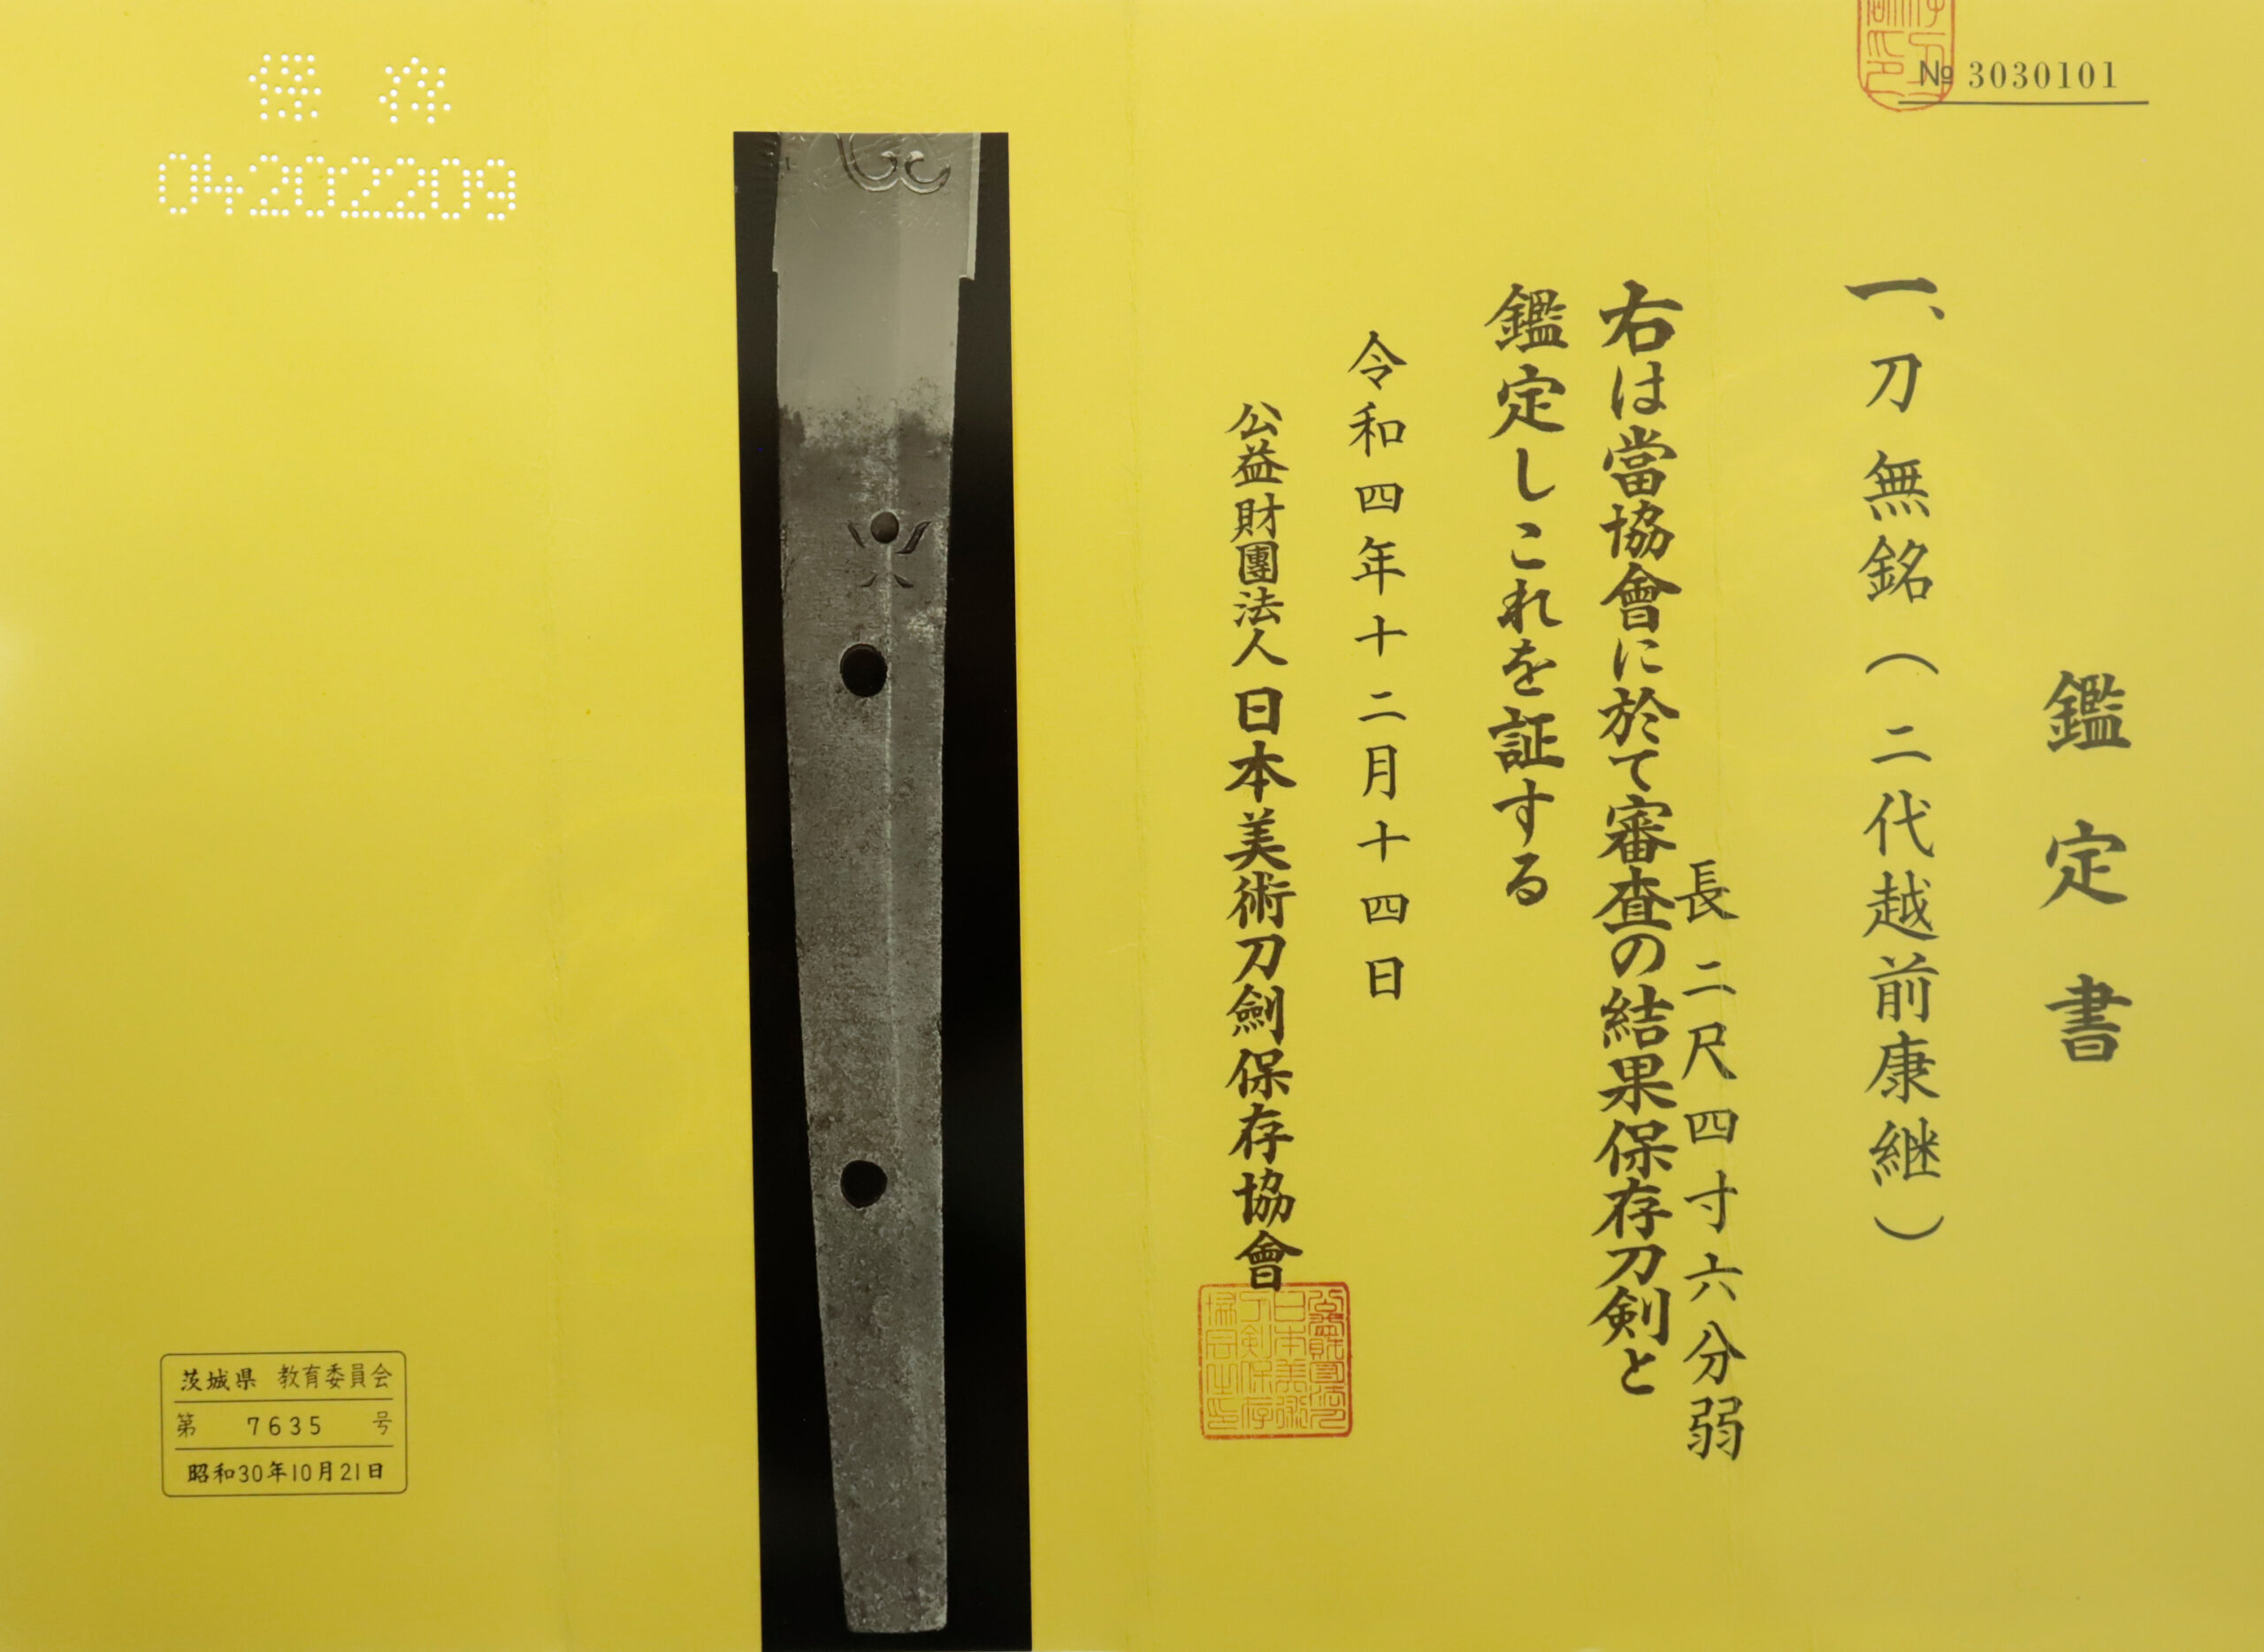 № 3030101
鑑定書
一、刀 無銘（二代越前康継）
長 二尺四寸六分弱
右は當協會に於て審査の結果保存刀剣と
鑑定しこれを証する
令和四年十二月十四日
公益財團法人 日本美術刀劍保存協會
保存
04202209
茨城県 教育委員会
第 7635 号
昭和30年10月21日